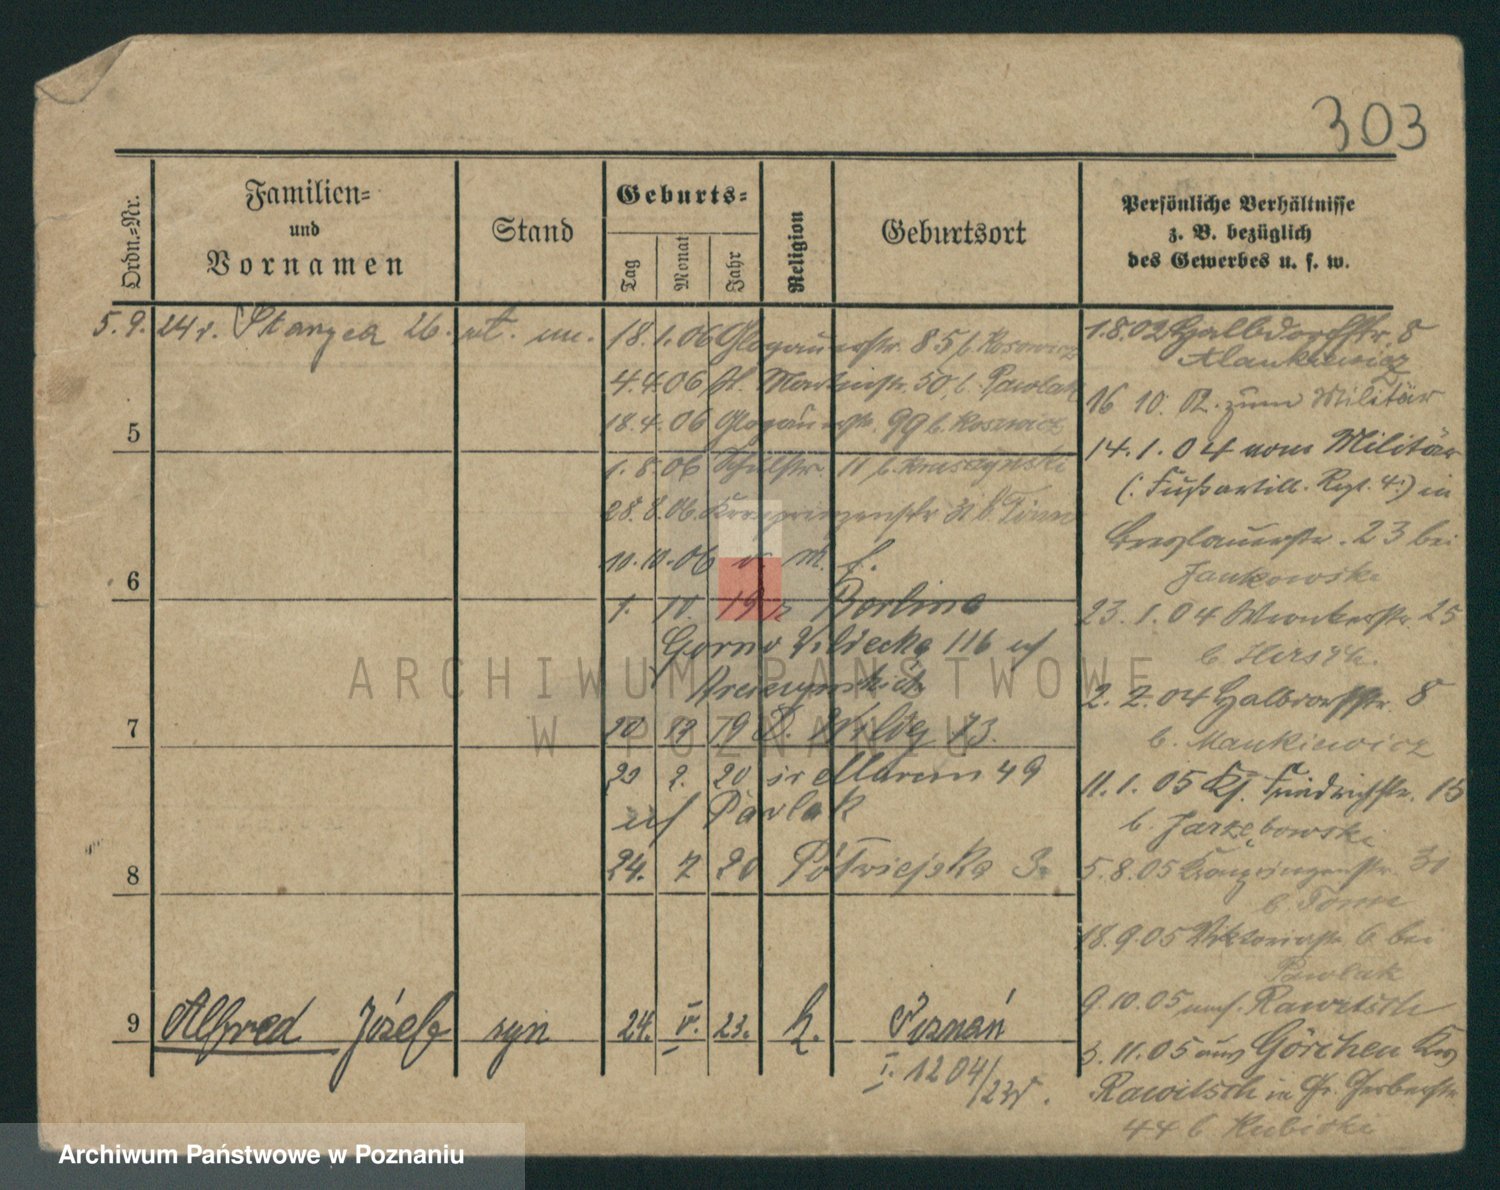 303
Ordn.-Nr.
Familien-
und
Vornamen
Stand
Geburts-
Tag
Monat
Jahr
Religion
Geburtsort
Persönliche Verhältnisse
z. B. bezüglich
des Gewerbes u. s. w.
5. 9. 24 v. 26.
18. 1. 06 Glogauerstr. 85 b.
4. 4. 06 St. Martinstr. 50, b. Pawlak
18. 4. 06 Glogauerstr. 99 b.
5
1. 8. 06 Schulstr. 11 b.
28. 8. 06. Kronprinzenstr 31 b. Tonn
10. 10. 06 v. m. f.
6
1. 10. 19 z Berlina
Gorno Wildecka 116
7
20 19 G. Wildy 73.
22 2. 20 Marcin 49
Pawlak
8
24. 7 20 Półwiejska
9 Alfred Józef syn 24. V. 23. k. Poznań
I. 1204/23
1.8.02 Halbdorffstr. 8
16 10. 02. zum Militär
14. 1. 04 vom Militär
(: Fußartill. Regt. 4:) in
Breslauerstr. 23 bei
Jankowski
23. 1. 04 Wronkerstr. 25
b. Hirsch.
2. 2. 04 Halbdorfstr. 8
b. Mankiewicz
11. 1. 05 Friedrichstr. 15
b. Jarzębowski
5. 8. 05 Kronprinzenstr. 31
b. Tonn
18. 9. 05 Viktoriastr. 6 bei
Pawlak
9. 10. 05 nach Rawitsch
3. 11. 05 aus Görchen Krs
Rawitsch in Gr. Gerberstr.
44 b Kubicki
ARCHIWUM PAŃSTWOWE
W POZNANIU
Archiwum Państwowe w Poznaniu